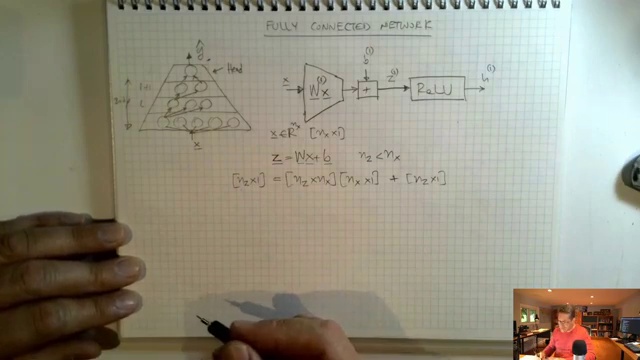 FULLY CONNECTED NETWORK
ŷ
Head
L+1
L
x
x
W⁽¹⁾x
b⁽¹⁾
+
z⁽¹⁾
ReLU
h⁽¹⁾
x ∈ ℝⁿˣ [nₓ×1]
z = Wx + b n_z < nₓ
[n_z×1] = [n_z×nₓ][nₓ×1] + [n_z×1]